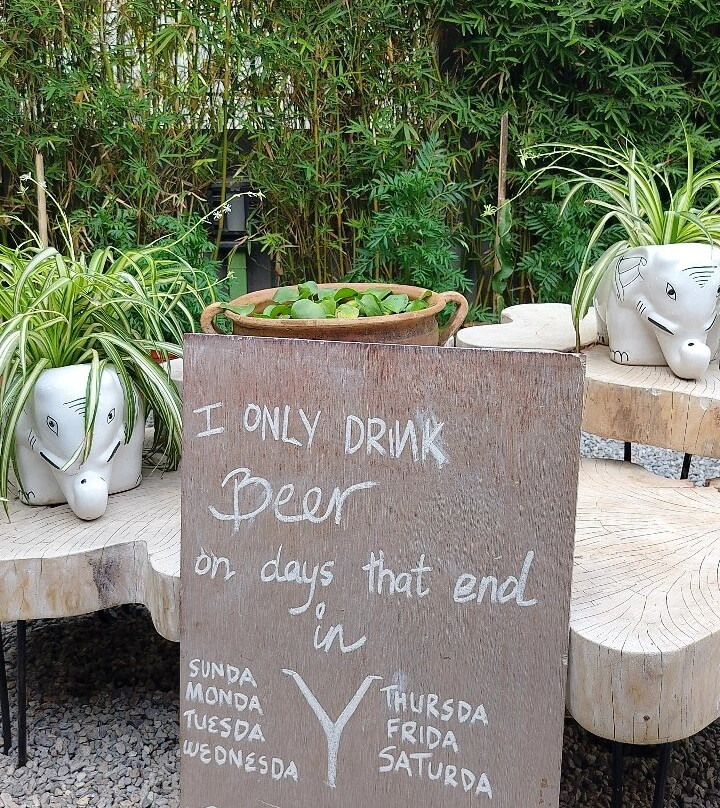 I ONLY DRINK
Beer
on days that end
in
SUNDA
MONDA
TUESDA
WEDNESDA
Y
THURSDA
FRIDA
SATURDA